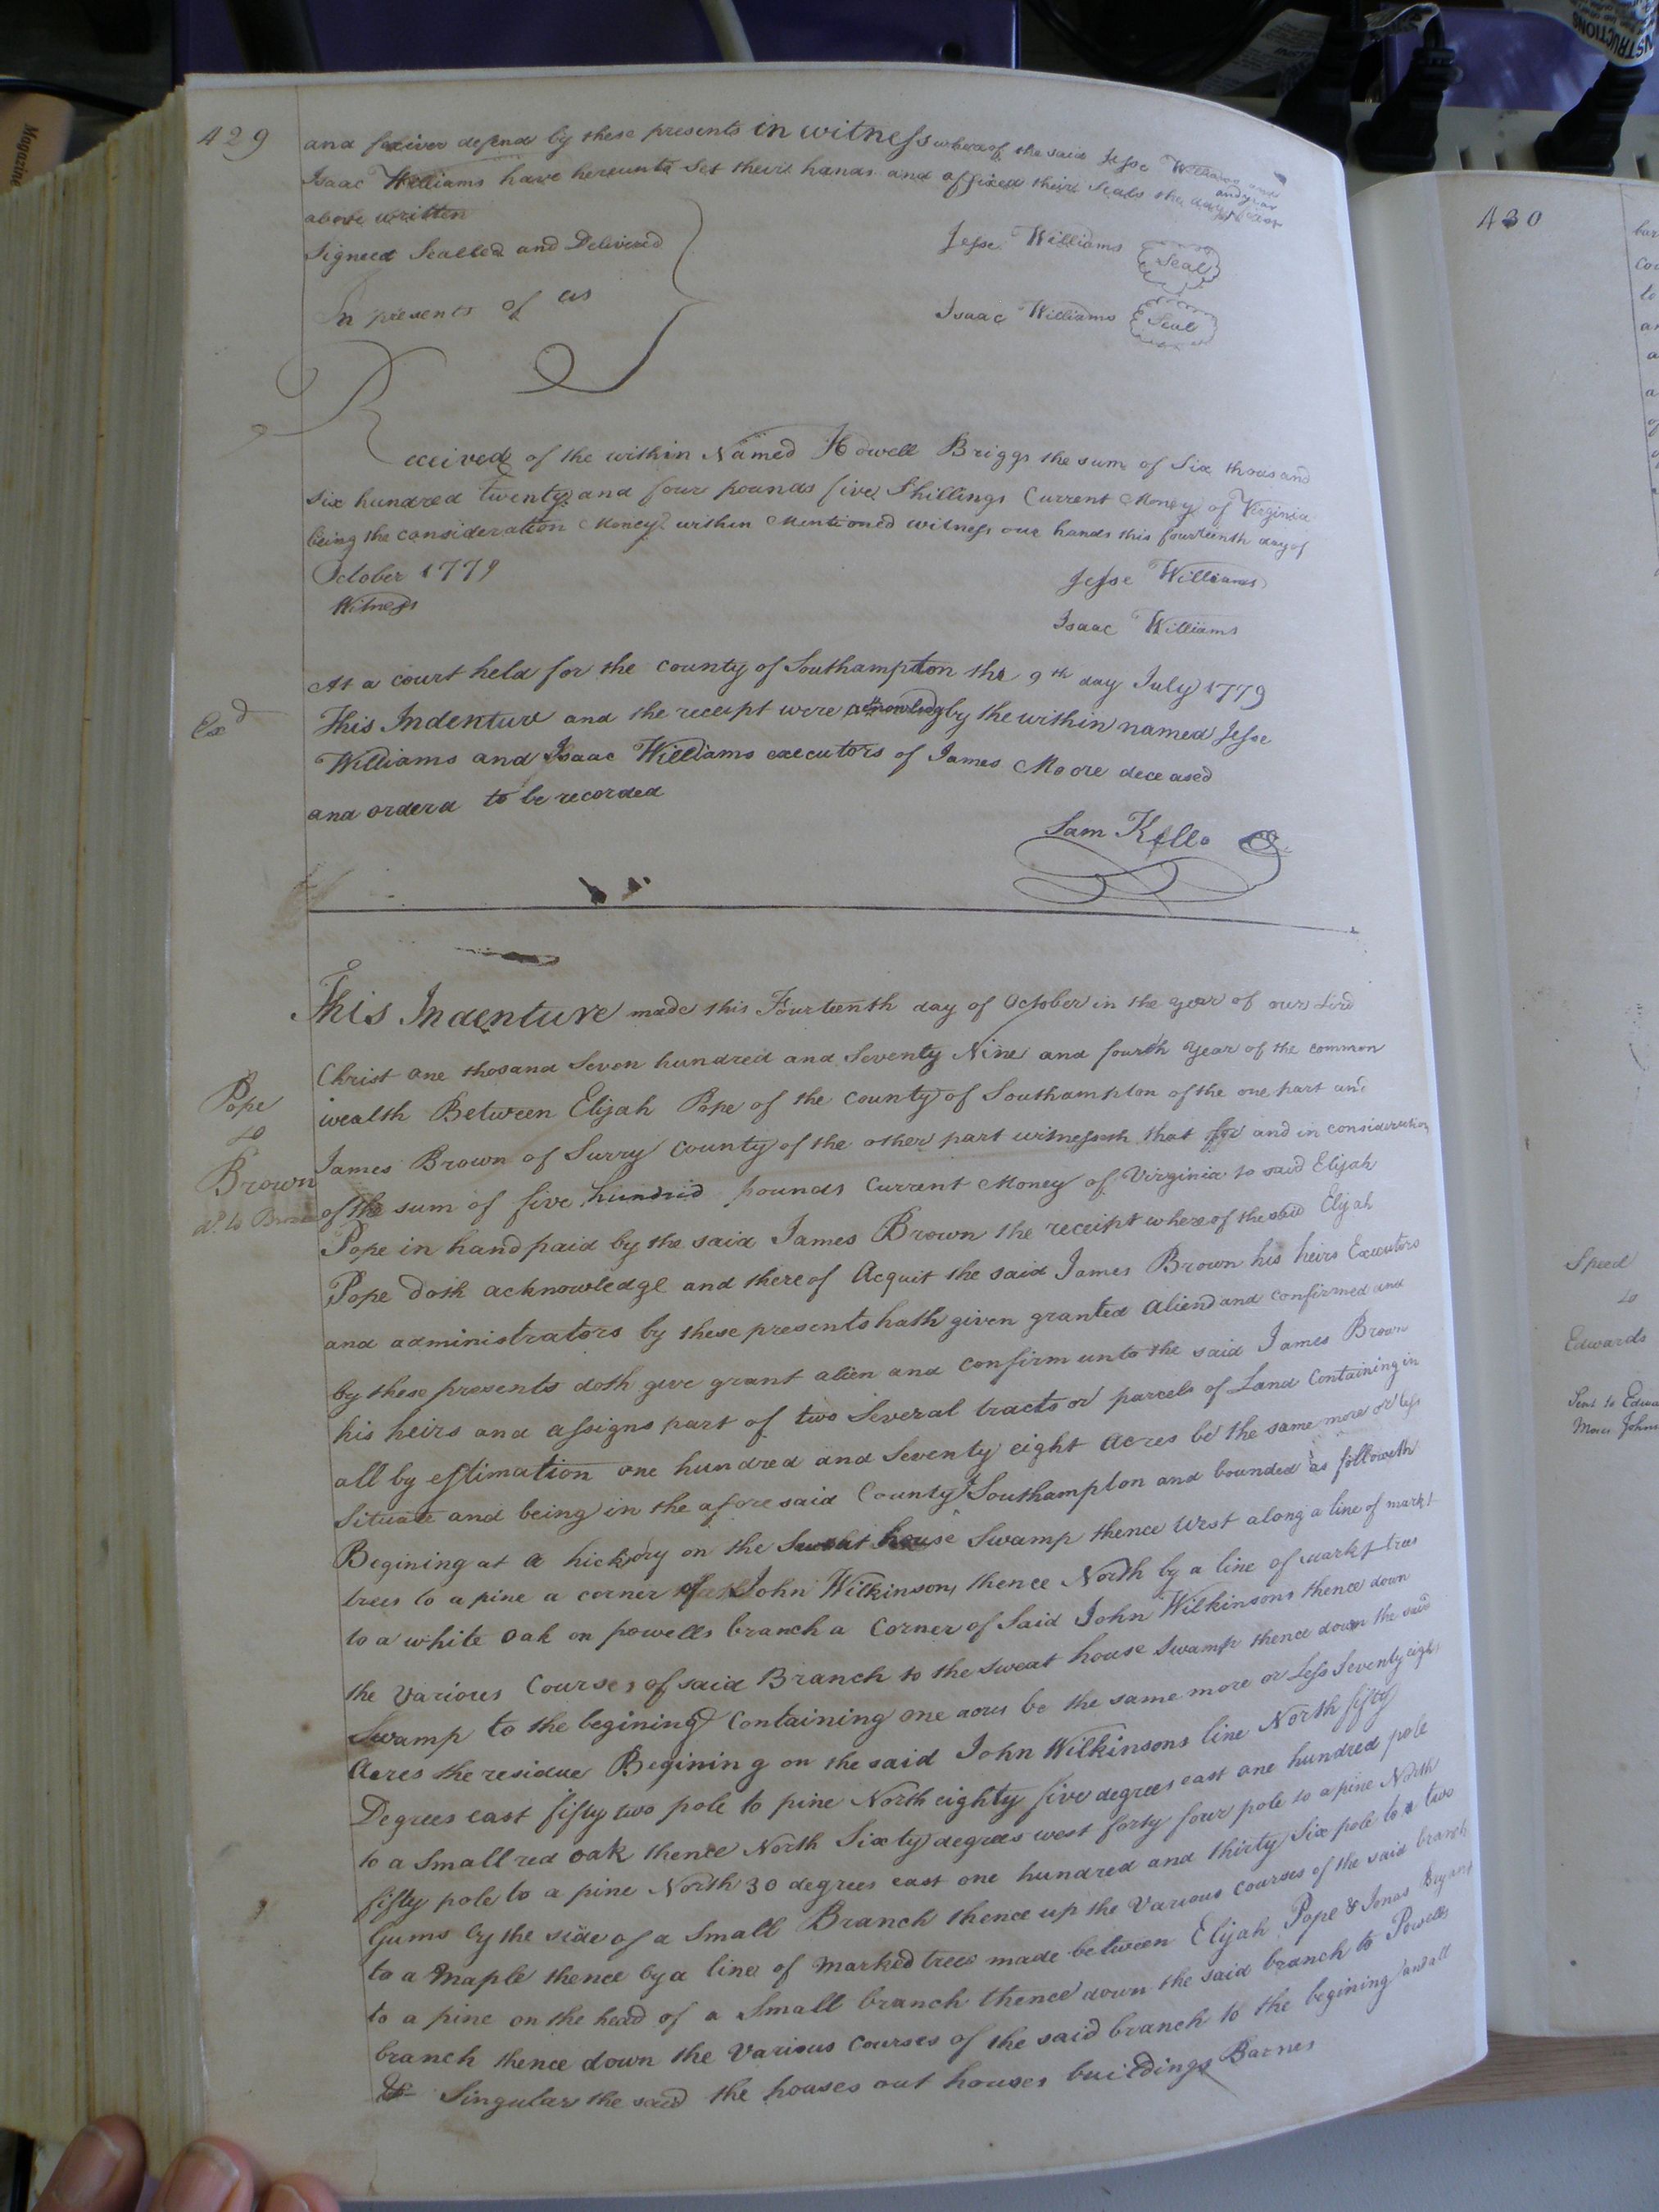 429
and forever defend by these presents in witness whereof the said Jesse Williams and
Isaac Williams have hereunto set their hands and affixed their Seals the day and year
above written
Signed Sealled and Delivered
In presents of us
Jesse Williams Seal
Isaac Williams Seal
Received of the within Named Howell Briggs the sum of Six thousand
six hundred twenty and four pounds five Shillings Current Money of Virginia
being the consideration Money within Mentioned witness our hands this fourteenth day of
October 1779
Witness
Jesse Williams
Isaac Williams
At a court held for the county of Southampton the 9th day July 1779
Exd
This Indenture and the receipt were acknowledg by the within named Jesse
Williams and Isaac Williams executors of James Moore deceased
and orderd to be recorded
Sam Kello
This Indenture made this Fourteenth day of October in the year of our Lord
Christ one thosand Seven hundred and Seventy Nine and fourth year of the common
wealth Between Elijah Pope of the county of Southampton of the one part and
Pope
to
Brown
James Brown of Surry County of the other part witnesseth that for and in consideration
of the sum of five hundrid pounds Current Money of Virginia to said Elijah
Pope in hand paid by the said James Brown the receipt whereof the said Elijah
Pope doth acknowledge and thereof Acquit the said James Brown his heirs Executors
and administrators by these presents hath given granted aliend and confirmed and
by these presents doth give grant alien and confirm unto the said James Brown
his heirs and assigns part of two Several tracts or parcels of Land Containing in
all by estimation one hundred and Seventy eight acres be the same more or less
Situate and being in the afore said County Southampton and bounded as followeth
Begining at a hickory on the Sweat house Swamp thence West along a line of markt
trees to a pine a corner of John Wilkinsons thence North by a line of markt trees
to a white oak on powells branch a Corner of Said John Wilkinsons thence down
the various Courses of said Branch to the sweat house swamp thence down the said
Swamp to the begining Containing one acres be the same more or less Seventy eight
Acres the residue Begining on the said John Wilkinsons line North fifty
Degrees east fifty two pole to pine North eighty five degrees east one hundred pole
to a small red oak thence North Sixty degrees west forty four pole to a pine North
fifty pole to a pine North 30 degrees east one hundred and thirty Six pole to a two
Gums by the side of a Small Branch thence up the various courses of the said branch
to a maple thence by a line of marked trees made between Elijah Pope & Jonas Bryant
to a pine on the head of a Small branch thence down the said branch to Powells
branch thence down the various courses of the said branch to the begining and all
& Singular the said the houses out houses buildings Barnes
430
Speed
to
Edwards